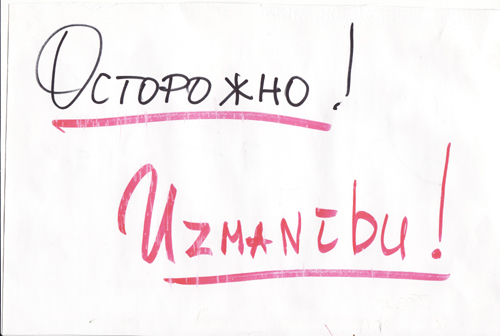 Осторожно!
Uzmanību!